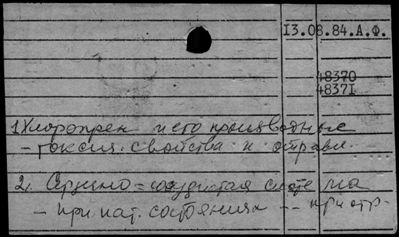 13.08.84.А.Ф.
48370
48371
1 Хлоропрен и его производные
- токсич. свойства и отравл.
2. Сердечно-сосудистая система
- при пат. состояниях -- при отр.